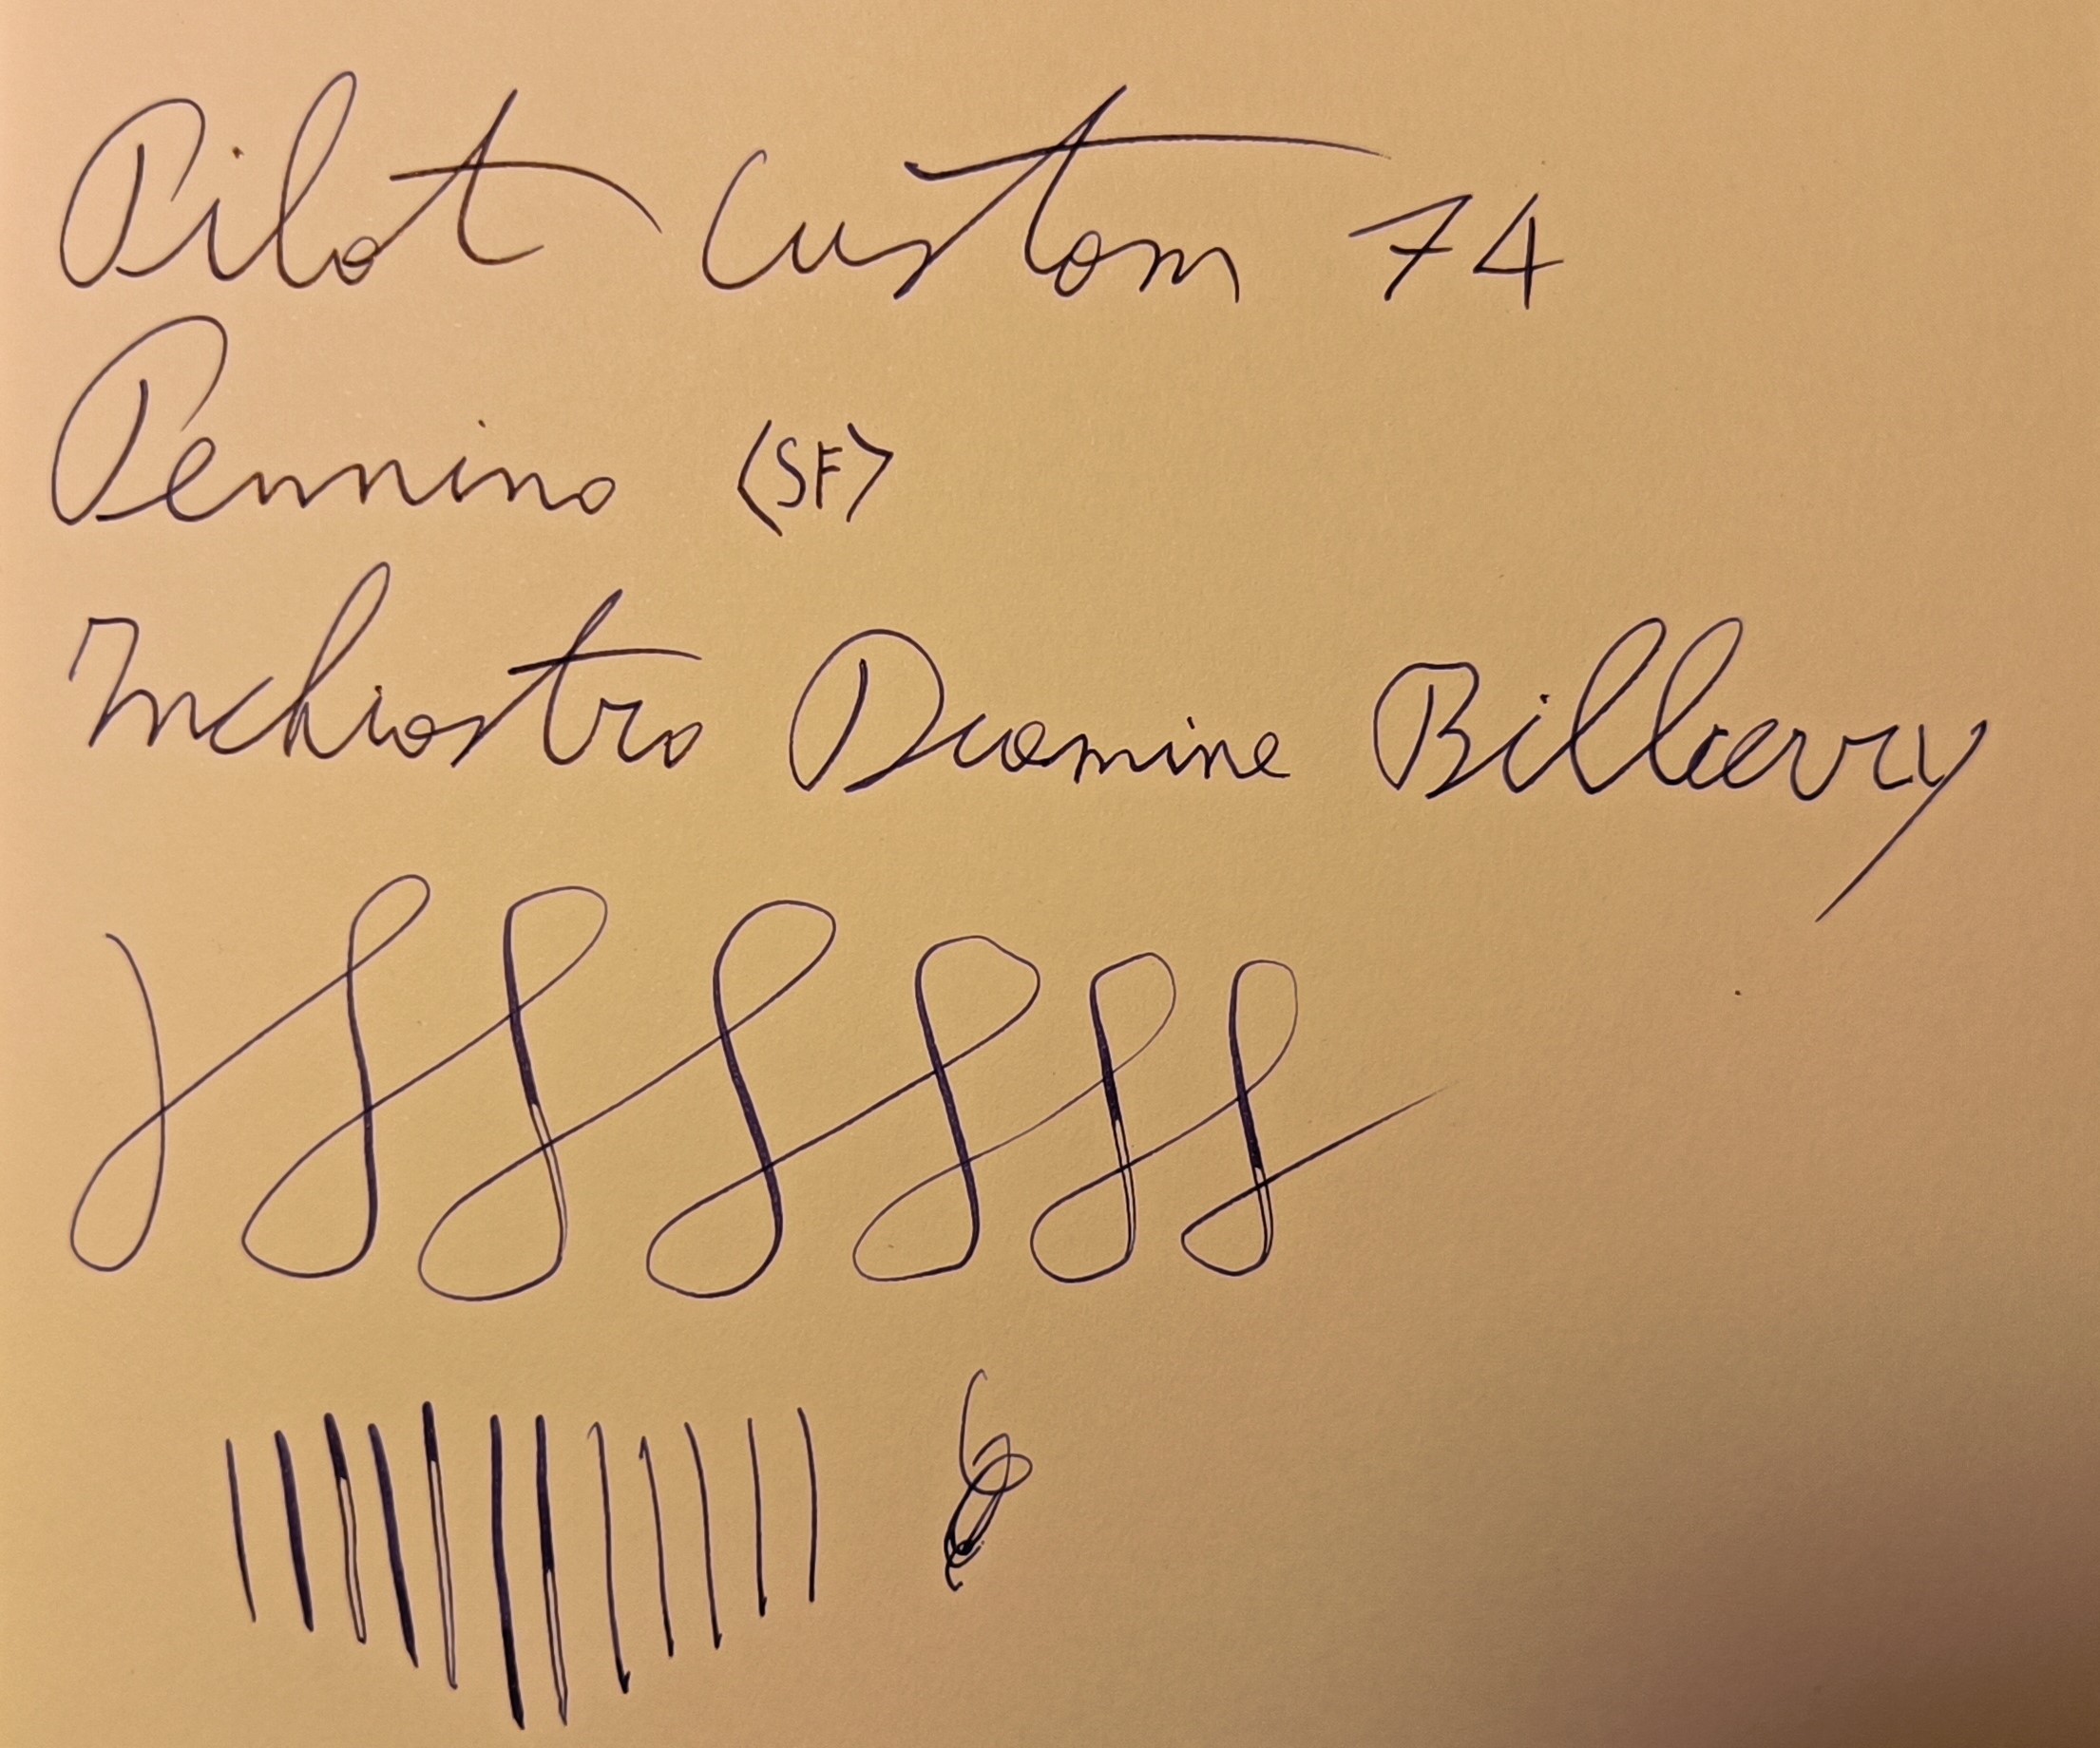 Pilot Custom 74
Pennino <SF>
Inchiostro Diamine Bilberry